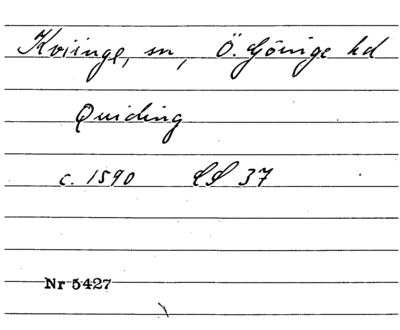 Kviinge, sn, Ö. Göinge hd
Quiding
c. 1590 LS 37
Nr 5427